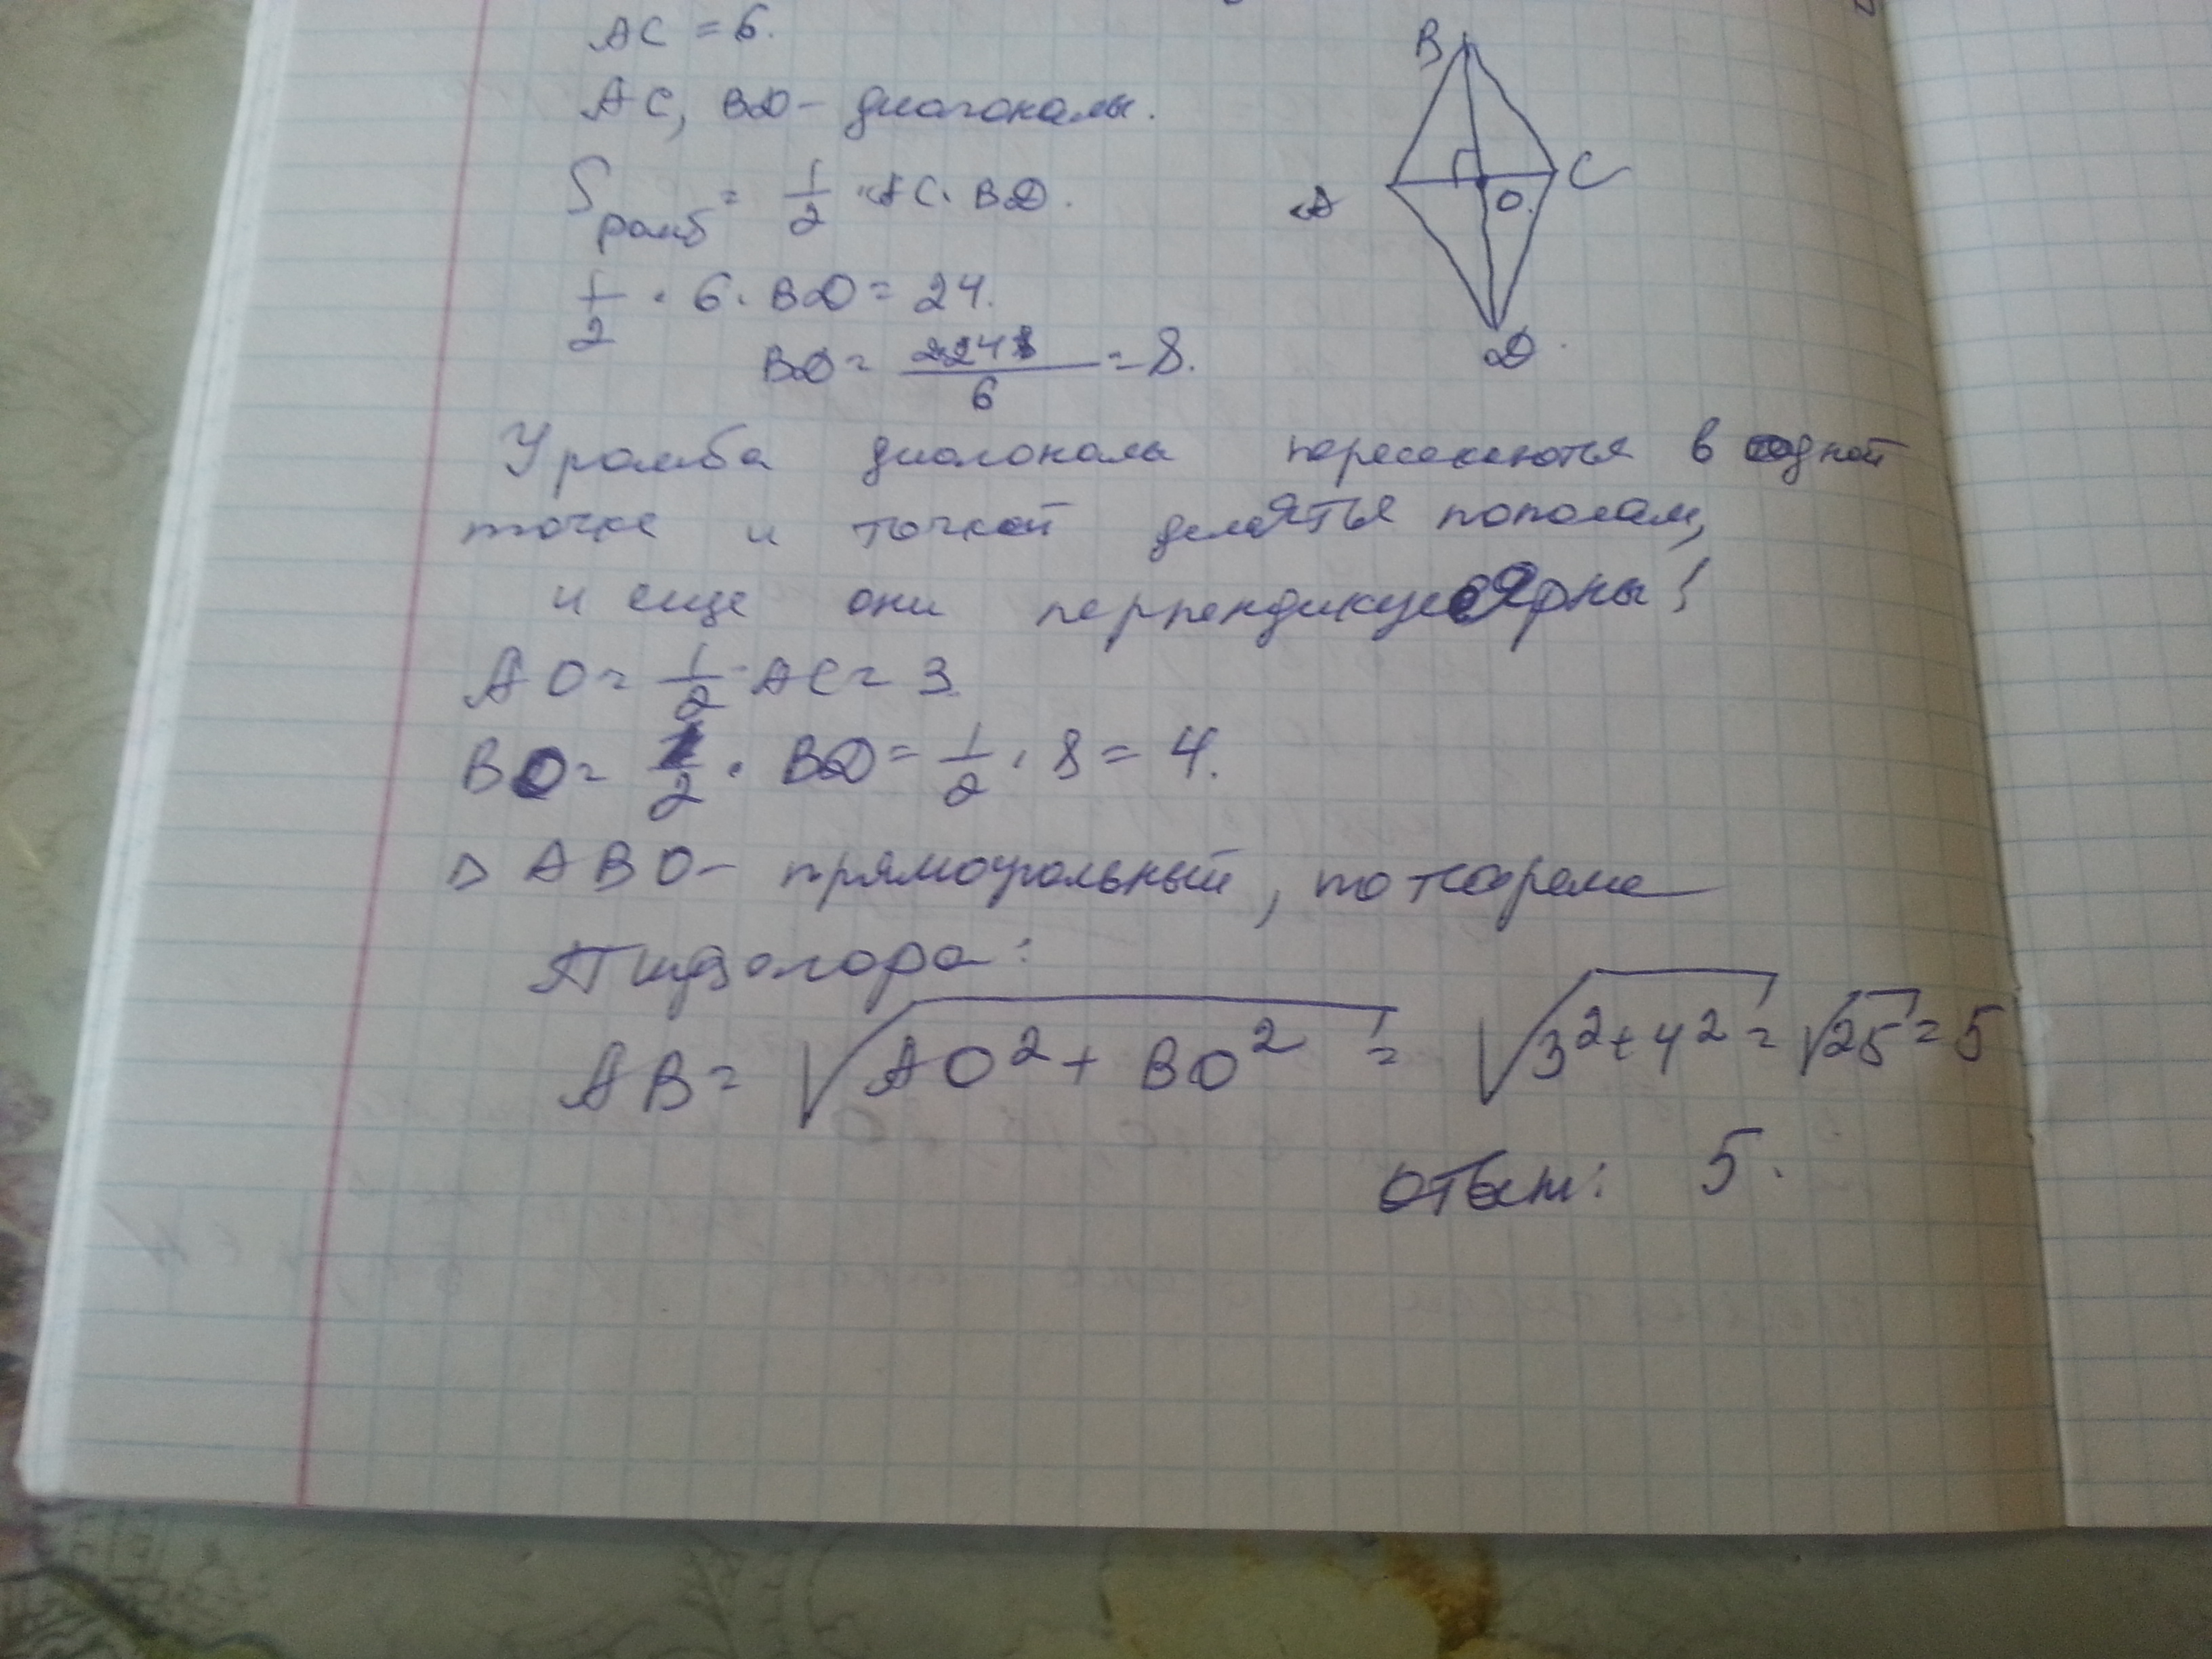 AC = 6.
AC, BD - диагонали.
B
S ромб = 1/2 · AC · BD.
A
O.
C
1/2 · 6 · BD = 24.
BD = 2·24/6 = 8.
D
У ромба диагонали пересекаются в одной
точке и точкой делятся пополам,
и еще они перпендикулярны!
AO = 1/2 · AC = 3
BO = 1/2 · BD = 1/2 · 8 = 4.
△ ABO - прямоугольный, по теореме
Пифагора:
AB = √(AO² + BO²) = √(3² + 4²) = √25 = 5
Ответ: 5.